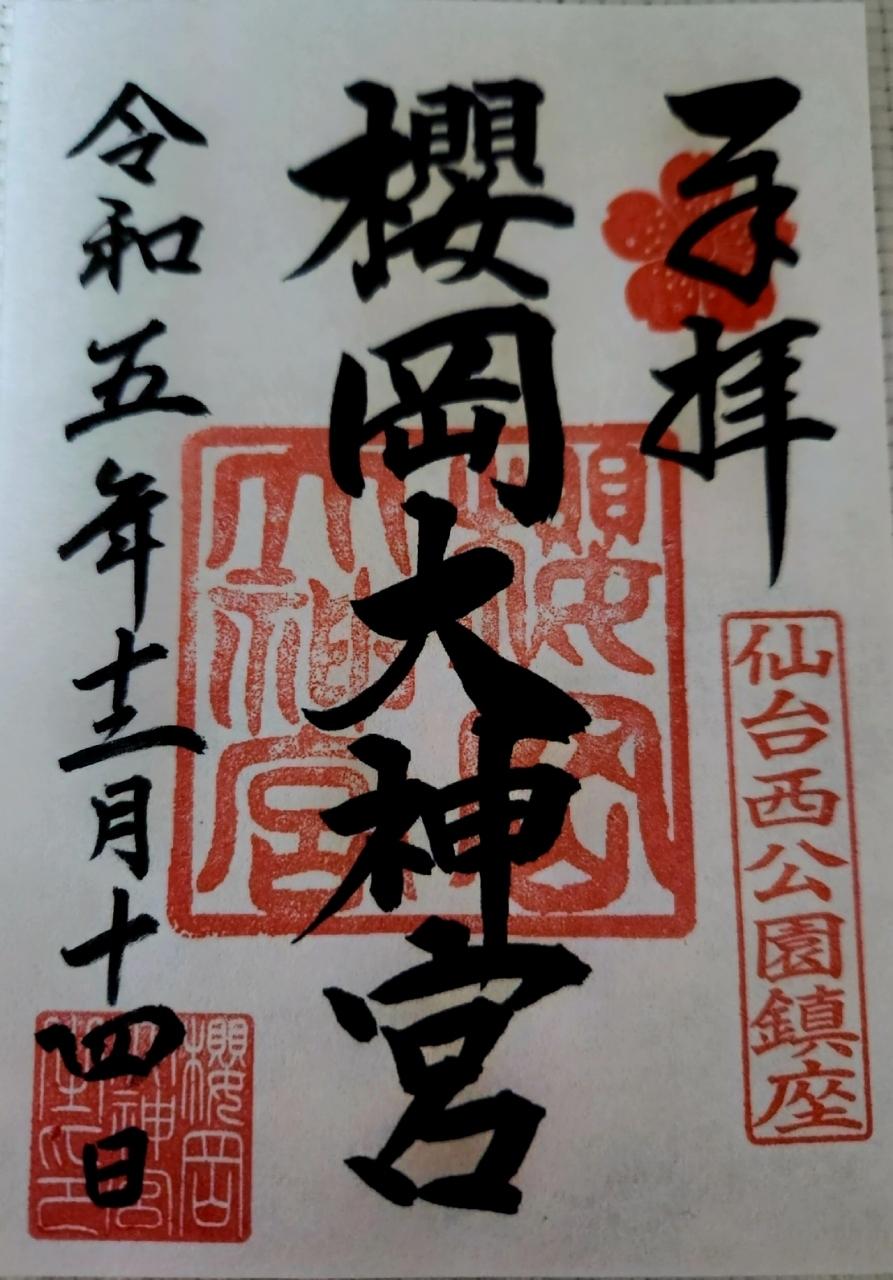 奉拝
仙台西公園鎮座
櫻岡大神宮
櫻岡大神宮
令和五年十二月十四日